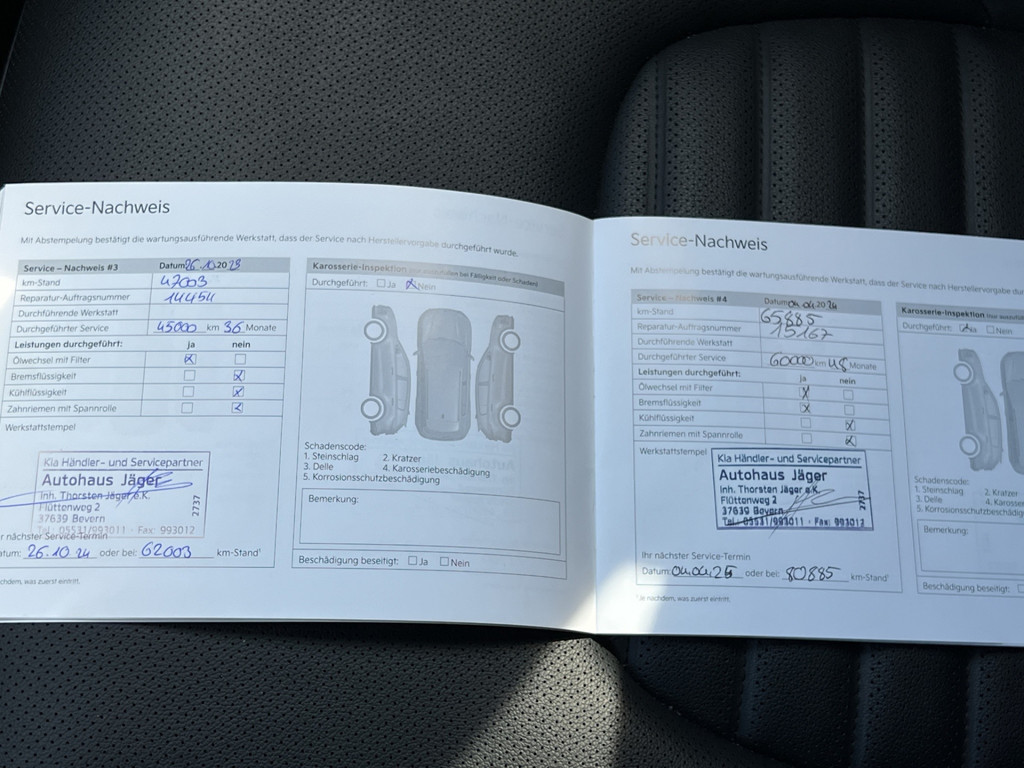 Service-Nachweis
Mit Abstempelung bestätigt die wartungsausführende Werkstatt, dass der Service nach Herstellervorgabe durchgeführt wurde.
Service – Nachweis #3 Datum 26.10.2023
km-Stand 47003
Reparatur-Auftragsnummer 14454
Durchführende Werkstatt
Durchgeführter Service 45000 km 36 Monate
Leistungen durchgeführt: ja nein
Ölwechsel mit Filter
Bremsflüssigkeit
Kühlflüssigkeit
Zahnriemen mit Spannrolle
Werkstattstempel
Kia Händler- und Servicepartner
Autohaus Jäger
Inh. Thorsten Jäger e.K.
Flüttenweg 2
37639 Bevern
Tel.: 05531/993011 · Fax: 993012
2737
nächster Service-Termin
Datum: 26.10.24 oder bei: 62003 km-Stand¹
nachdem, was zuerst eintritt.
Karosserie-Inspektion
Durchgeführt: Ja Nein
Schadenscode:
1. Steinschlag 2. Kratzer
3. Delle 4. Karosseriebeschädigung
5. Korrosionsschutzbeschädigung
Bemerkung:
Beschädigung beseitigt: Ja Nein
Service-Nachweis
Mit Abstempelung bestätigt die wartungsausführende Werkstatt, dass der Service nach Herstellervorgabe
Service – Nachweis #4 Datum 04.04.2024
km-Stand 65885
Reparatur-Auftragsnummer 15167
Durchführende Werkstatt
Durchgeführter Service 60000 km 48 Monate
Leistungen durchgeführt: ja nein
Ölwechsel mit Filter
Bremsflüssigkeit
Kühlflüssigkeit
Zahnriemen mit Spannrolle
Werkstattstempel
Kia Händler- und Servicepartner
Autohaus Jäger
Inh. Thorsten Jäger e.K.
Flüttenweg 2
37639 Bevern
Tel.: 05531/993011 · Fax: 993012
2737
Ihr nächster Service-Termin
Datum: 04.04.25 oder bei: 80885 km-Stand¹
¹ Je nachdem, was zuerst eintritt.
Karosserie-Inspektion
Durchgeführt: Ja Nein
Schadenscode:
1. Steinschlag 2. Kratzer
3. Delle 4. Karosserie
5. Korrosionsschutzbeschädig
Bemerkung:
Beschädigung beseitigt: